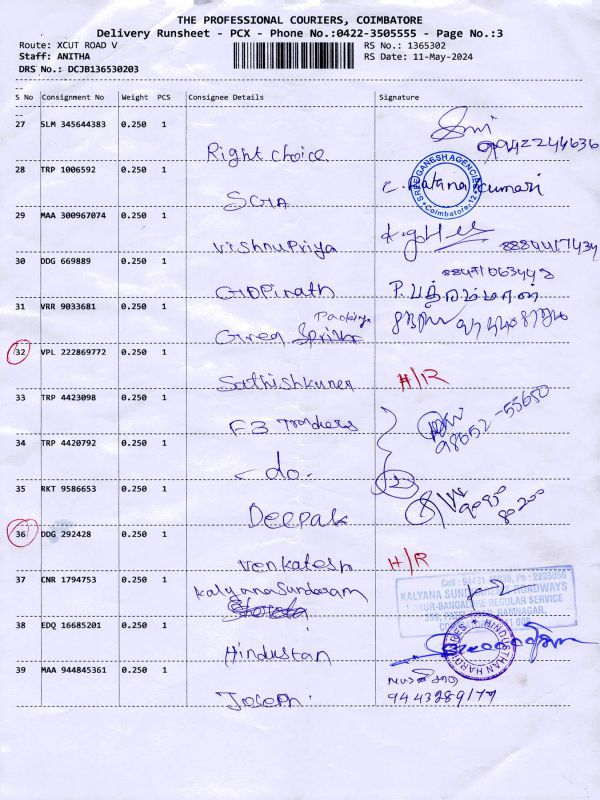 THE PROFESSIONAL COURIERS, COIMBATORE
Delivery Runsheet - PCX - Phone No.:0422-3505555 - Page No.:3
Route: XCUT ROAD V
RS No.: 1365302
Staff: ANITHA
RS Date: 11-May-2024
DRS No.: DCJB136530203
S No Consignment No Weight PCS Consignee Details Signature
27 SLM 345644383 0.250 1
Right choice
28 TRP 1006592 0.250 1
GANESH AGENCIES
Coimbatore-12
SGA
29 MAA 300967074 0.250 1
VishnuPriya
8884417434
30 DDG 669889 0.250 1
Gopinath
31 VRR 9033681 0.250 1
Packing
Green
32 VPL 222869772 0.250 1
Sathishkumar H/R
33 TRP 4423098 0.250 1
F3 Traders
98652-55650
34 TRP 4420792 0.250 1
-do-
2
35 RKT 9586653 0.250 1
Deepak
36 DDG 292428 0.250 1
Venkatesh H/R
37 CNR 1794753 0.250 1
Kalyana Sundaram
KALYANA SUNDARAM ROADWAYS
REGULAR SERVICE
38 EDQ 16685201 0.250 1
HINDUSTHAN HARDWARES
Hindustan
39 MAA 944845361 0.250 1
Joseph
9443289177